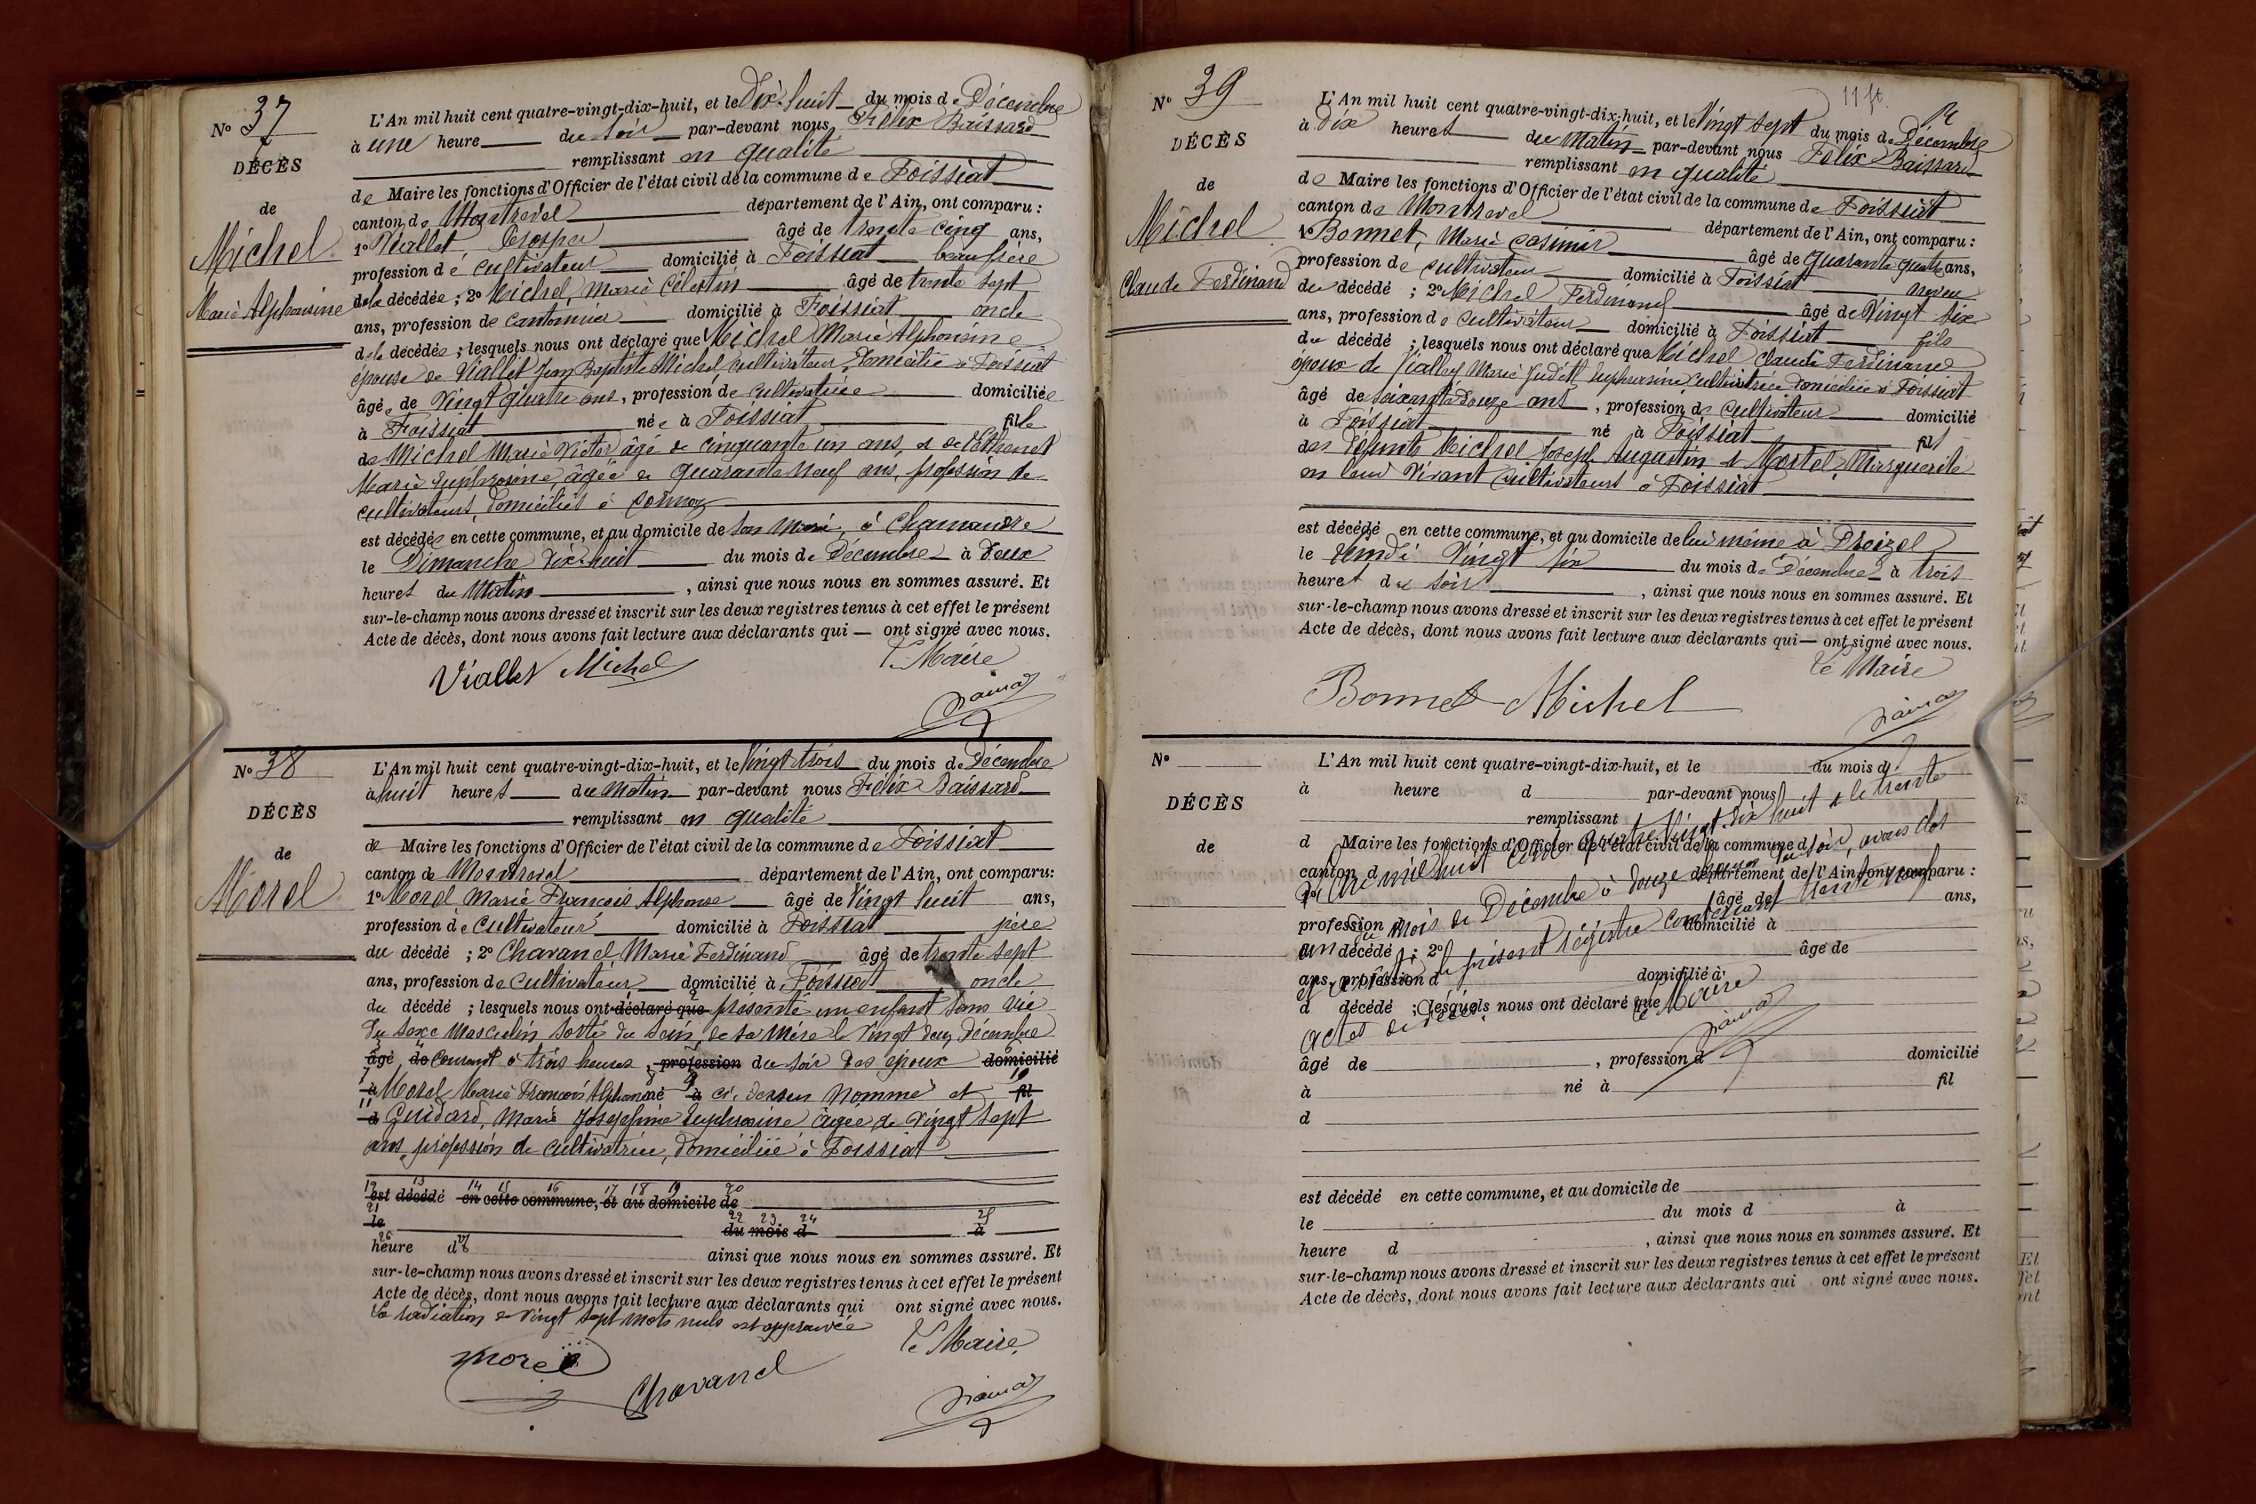 No 37
DÉCÈS
de
Michel
Marie Alphonsine
L'An mil huit cent quatre-vingt-dix-huit, et le Dix-huit du mois de Décembre
à une heure du Soir par-devant nous Félix Baissard
remplissant en qualité
de Maire les fonctions d'Officier de l'état civil de la commune de Foissiat
canton de Montrevel département de l'Ain, ont comparu :
1o Viallet Prosper âgé de trente cinq ans,
profession de cultivateur domicilié à Foissiat beau frère
de la décédée ; 2o Michel, Marie Célestin âgé de trente sept
ans, profession de cantonnier domicilié à Foissiat oncle
de la décédée ; lesquels nous ont déclaré que Michel Marie Alphonsine
épouse de Viallet Jean Baptiste Michel cultivateur, domiciliée à Foissiat
âgée de Vingt quatre ans, profession de cultivatrice domiciliée
à Foissiat née à Foissiat fille
de Michel Marie Victor âgé de cinquante un ans, et de
Marie Euphrosine, âgée de quarante neuf ans, profession de
cultivateurs, domiciliés à
est décédée en cette commune, et au domicile de son mari, à Chamandre
le Dimanche dix-huit du mois de Décembre à Deux
heures du Matin, ainsi que nous nous en sommes assuré. Et
sur-le-champ nous avons dressé et inscrit sur les deux registres tenus à cet effet le présent
Acte de décès, dont nous avons fait lecture aux déclarants qui — ont signé avec nous.
Viallet Michel Le Maire
No 38
DÉCÈS
de
Morel
L'An mil huit cent quatre-vingt-dix-huit, et le Vingt trois du mois de Décembre
à huit heures du Matin par-devant nous Félix Baissard
remplissant en qualité
de Maire les fonctions d'Officier de l'état civil de la commune de Foissiat
canton de Montrevel département de l'Ain, ont comparu:
1o Morel Marie François Alphonse âgé de Vingt huit ans,
profession de cultivateur domicilié à Foissiat père
du décédé ; 2o Chavanel Marie Ferdinand âgé de trente sept
ans, profession de cultivateur domicilié à Foissiat oncle
du décédé ; lesquels nous ont déclaré que présenté un enfant sans vie
du sexe Masculin sorti du sein de sa Mère le Vingt deux Décembre
âgé de courant à trois heures, profession du soir des époux domicilié
à Morel Marie François Alphonse né à ci-dessus nommé et fil
d Guidard, Marie Joséphine Euphrosine âgée de Vingt sept
ans, profession de cultivatrice, domiciliée à Foissiat
12 13 14 15 16 17 18 19 20
est décédé en cette commune, et au domicile de
21 22 23 24 25
le du mois d à
26 27
heure d ainsi que nous nous en sommes assuré. Et
sur-le-champ nous avons dressé et inscrit sur les deux registres tenus à cet effet le présent
Acte de décès, dont nous avons fait lecture aux déclarants qui ont signé avec nous.
La radiation de Vingt sept mots nuls est approuvée
Le Maire
Morel
Chavanel
11 ft.
No 39
DÉCÈS
de
Michel
Claude Ferdinand
L'An mil huit cent quatre-vingt-dix-huit, et le Vingt sept du mois de Décembre
à Dix heures du Matin par-devant nous Félix Baissard
remplissant en qualité
de Maire les fonctions d'Officier de l'état civil de la commune de Foissiat
canton de Montrevel département de l'Ain, ont comparu :
1o Bonnet, Marie Casimir âgé de quarante quatre ans,
profession de cultivateur domicilié à Foissiat neveu
du décédé ; 2o Michel Ferdinand âgé de Vingt six
ans, profession de cultivateur domicilié à Foissiat fils
du décédé ; lesquels nous ont déclaré que Michel Claude Ferdinand
époux de Vialley Marie Judith Euphrosine cultivatrice domiciliée à Foissiat
âgé de soixante douze ans, profession de cultivateur domicilié
à Foissiat né à Foissiat fils
des défunts Michel Joseph Augustin et Mortel, Marguerite
en leur vivant cultivateurs à Foissiat
est décédé en cette commune, et au domicile de lui même à
le lundi Vingt six du mois de Décembre à trois
heures du soir, ainsi que nous nous en sommes assuré. Et
sur-le-champ nous avons dressé et inscrit sur les deux registres tenus à cet effet le présent
Acte de décès, dont nous avons fait lecture aux déclarants qui — ont signé avec nous.
Le Maire
Bonnet Michel
No
DÉCÈS
de
L'An mil huit cent quatre-vingt-dix-huit, et le du mois d
à heure d par-devant nous
remplissant
d Maire les fonctions d'Officier de l'état civil de la commune d
canton d département de l'Ain, ont comparu :
1o âgé de ans,
profession d domicilié à
d décédé ; 2o âge de
ans, profession d domicilié à
d décédé ; lesquels nous ont déclaré que
âgé de , profession d domicilié
à né à fil
d
est décédé en cette commune, et au domicile de
le du mois d à
heure d , ainsi que nous nous en sommes assuré. Et
sur-le-champ nous avons dressé et inscrit sur les deux registres tenus à cet effet le présent
Acte de décès, dont nous avons fait lecture aux déclarants qui ont signé avec nous.
mil huit cent quatre Vingt-dix huit et le trente
un du mois de Décembre à douze heures du soir, avons clos
le présent régistre contenant trente neuf
actes de décès.
Le Maire